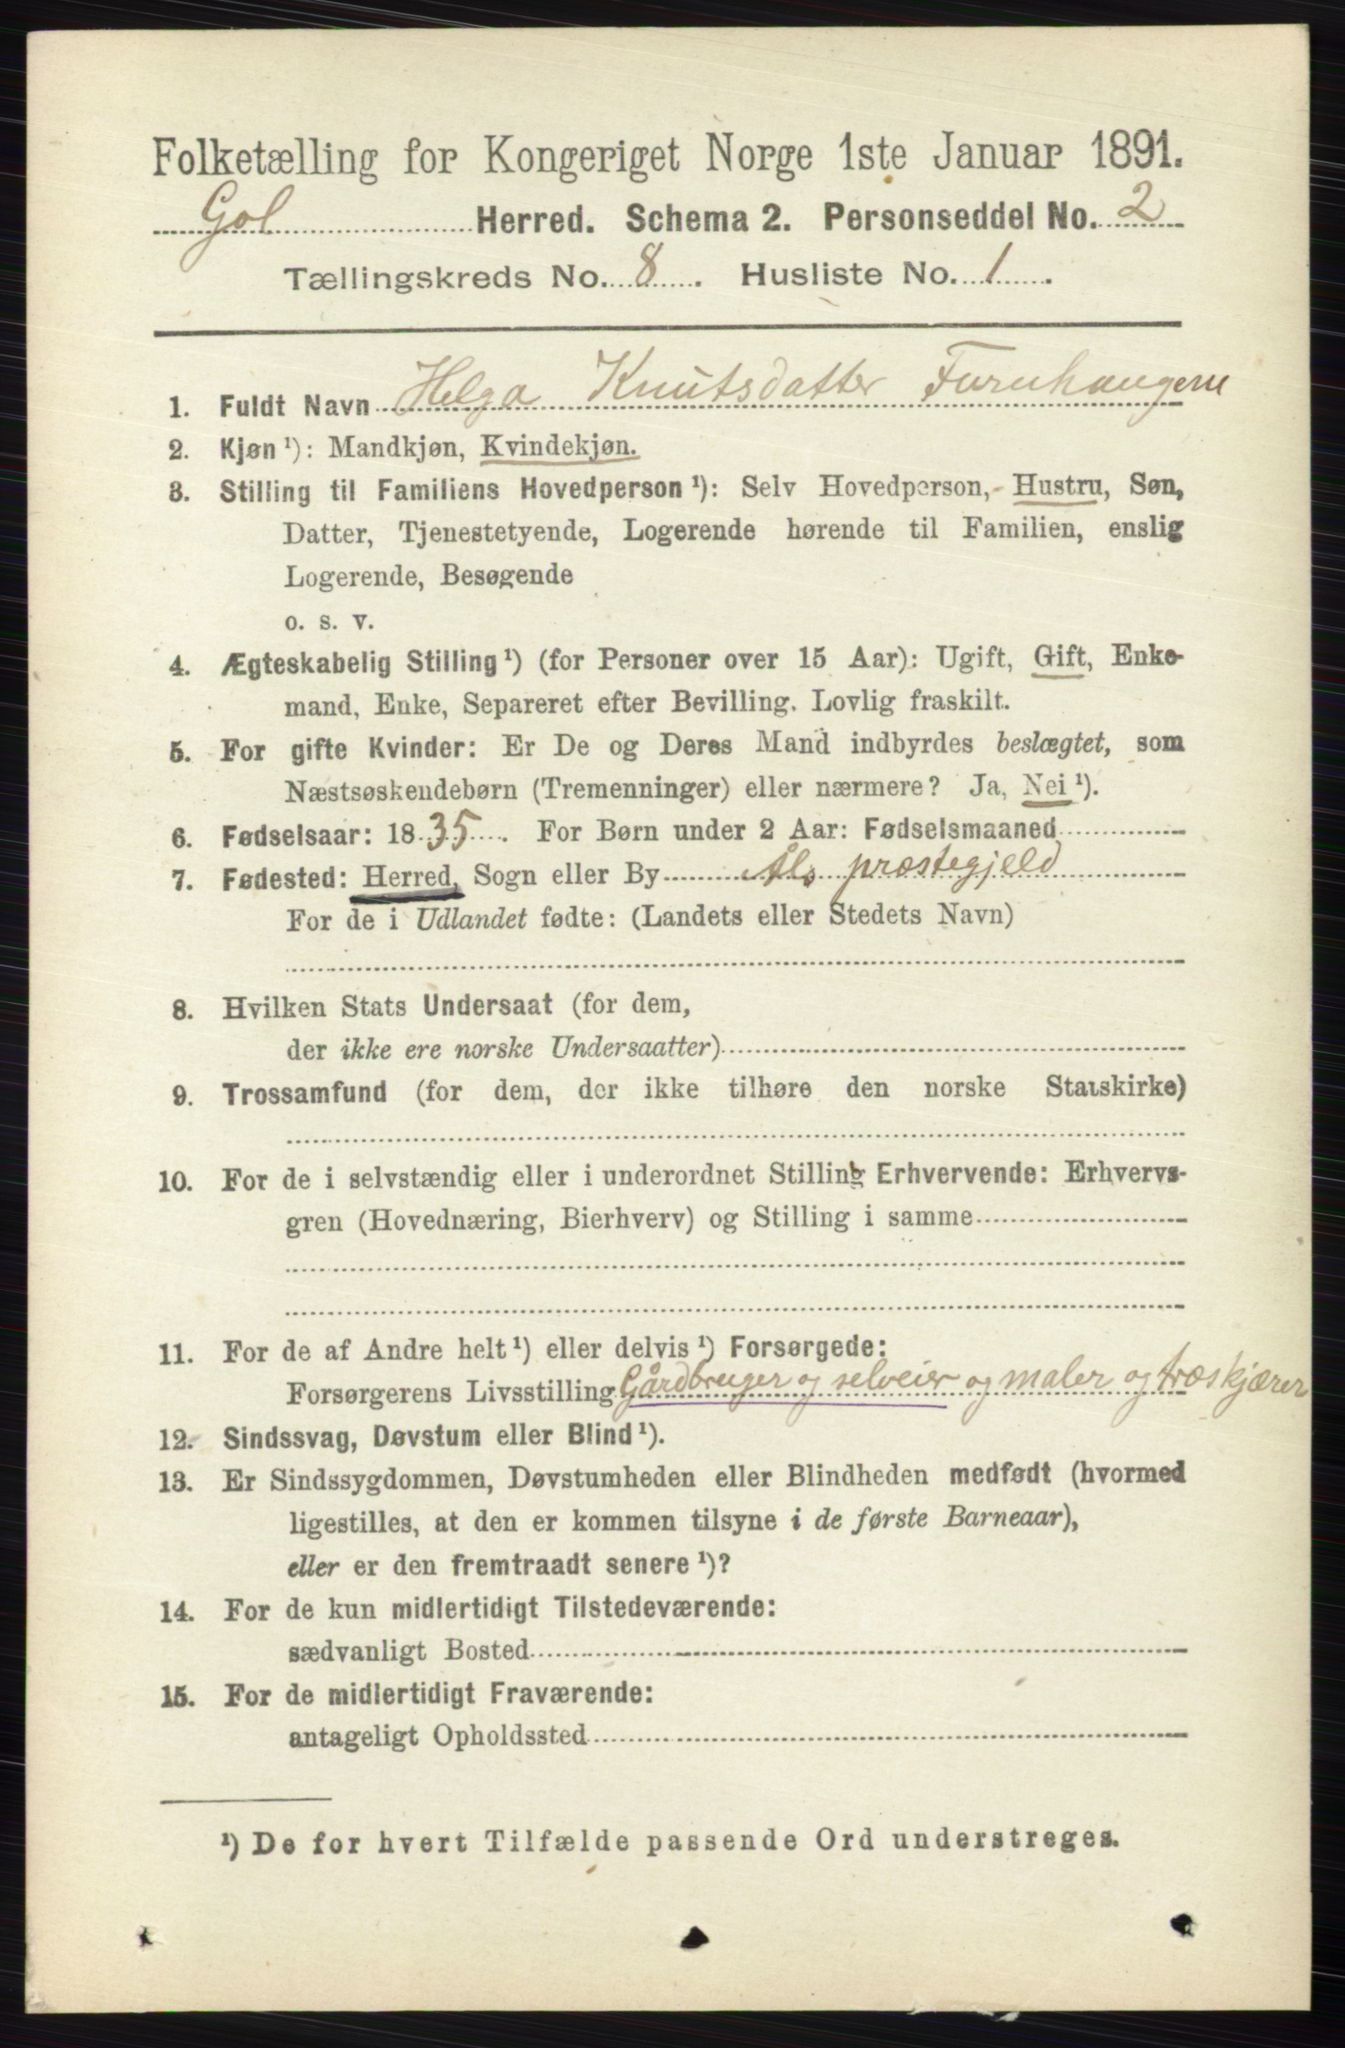 Folketælling for Kongeriget Norge 1ste Januar 1891.
Gol Herred. Schema 2. Personseddel No. 2
Tællingskreds No. 8. Husliste No. 1.
1. Fuldt Navn Helga Knutsdatter Furuhaugene
2. Kjøn¹): Mandkjøn, Kvindekjøn.
3. Stilling til Familiens Hovedperson¹): Selv Hovedperson, Hustru, Søn,
Datter, Tjenestetyende, Logerende hørende til Familien, enslig
Logerende, Besøgende
o. s. v.
4. Ægteskabelig Stilling¹) (for Personer over 15 Aar): Ugift, Gift, Enke-
mand, Enke, Separeret efter Bevilling. Lovlig fraskilt.
5. For gifte Kvinder: Er De og Deres Mand indbyrdes beslægtet, som
Næstsøskendebørn (Tremenninger) eller nærmere? Ja, Nei¹).
6. Fødselsaar: 1835. For Børn under 2 Aar: Fødselsmaaned
7. Fødested: Herred, Sogn eller By Åls præstegjeld
For de i Udlandet fødte: (Landets eller Stedets Navn)
8. Hvilken Stats Undersaat (for dem,
der ikke ere norske Undersaatter)
9. Trossamfund (for dem, der ikke tilhøre den norske Statskirke)
10. For de i selvstændig eller i underordnet Stilling Erhvervende: Erhvervs-
gren (Hovednæring, Bierhverv) og Stilling i samme
11. For de af Andre helt¹) eller delvis¹) Forsørgede:
Forsørgerens Livsstilling Gårdbruger og selveier og maler og træskjærer
12. Sindssvag, Døvstum eller Blind¹).
13. Er Sindssygdommen, Døvstumheden eller Blindheden medfødt (hvormed
ligestilles, at den er kommen tilsyne i de første Barneaar),
eller er den fremtraadt senere¹)?
14. For de kun midlertidigt Tilstedeværende:
sædvanligt Bosted
15. For de midlertidigt Fraværende:
antageligt Opholdssted
¹) De for hvert Tilfælde passende Ord understreges.